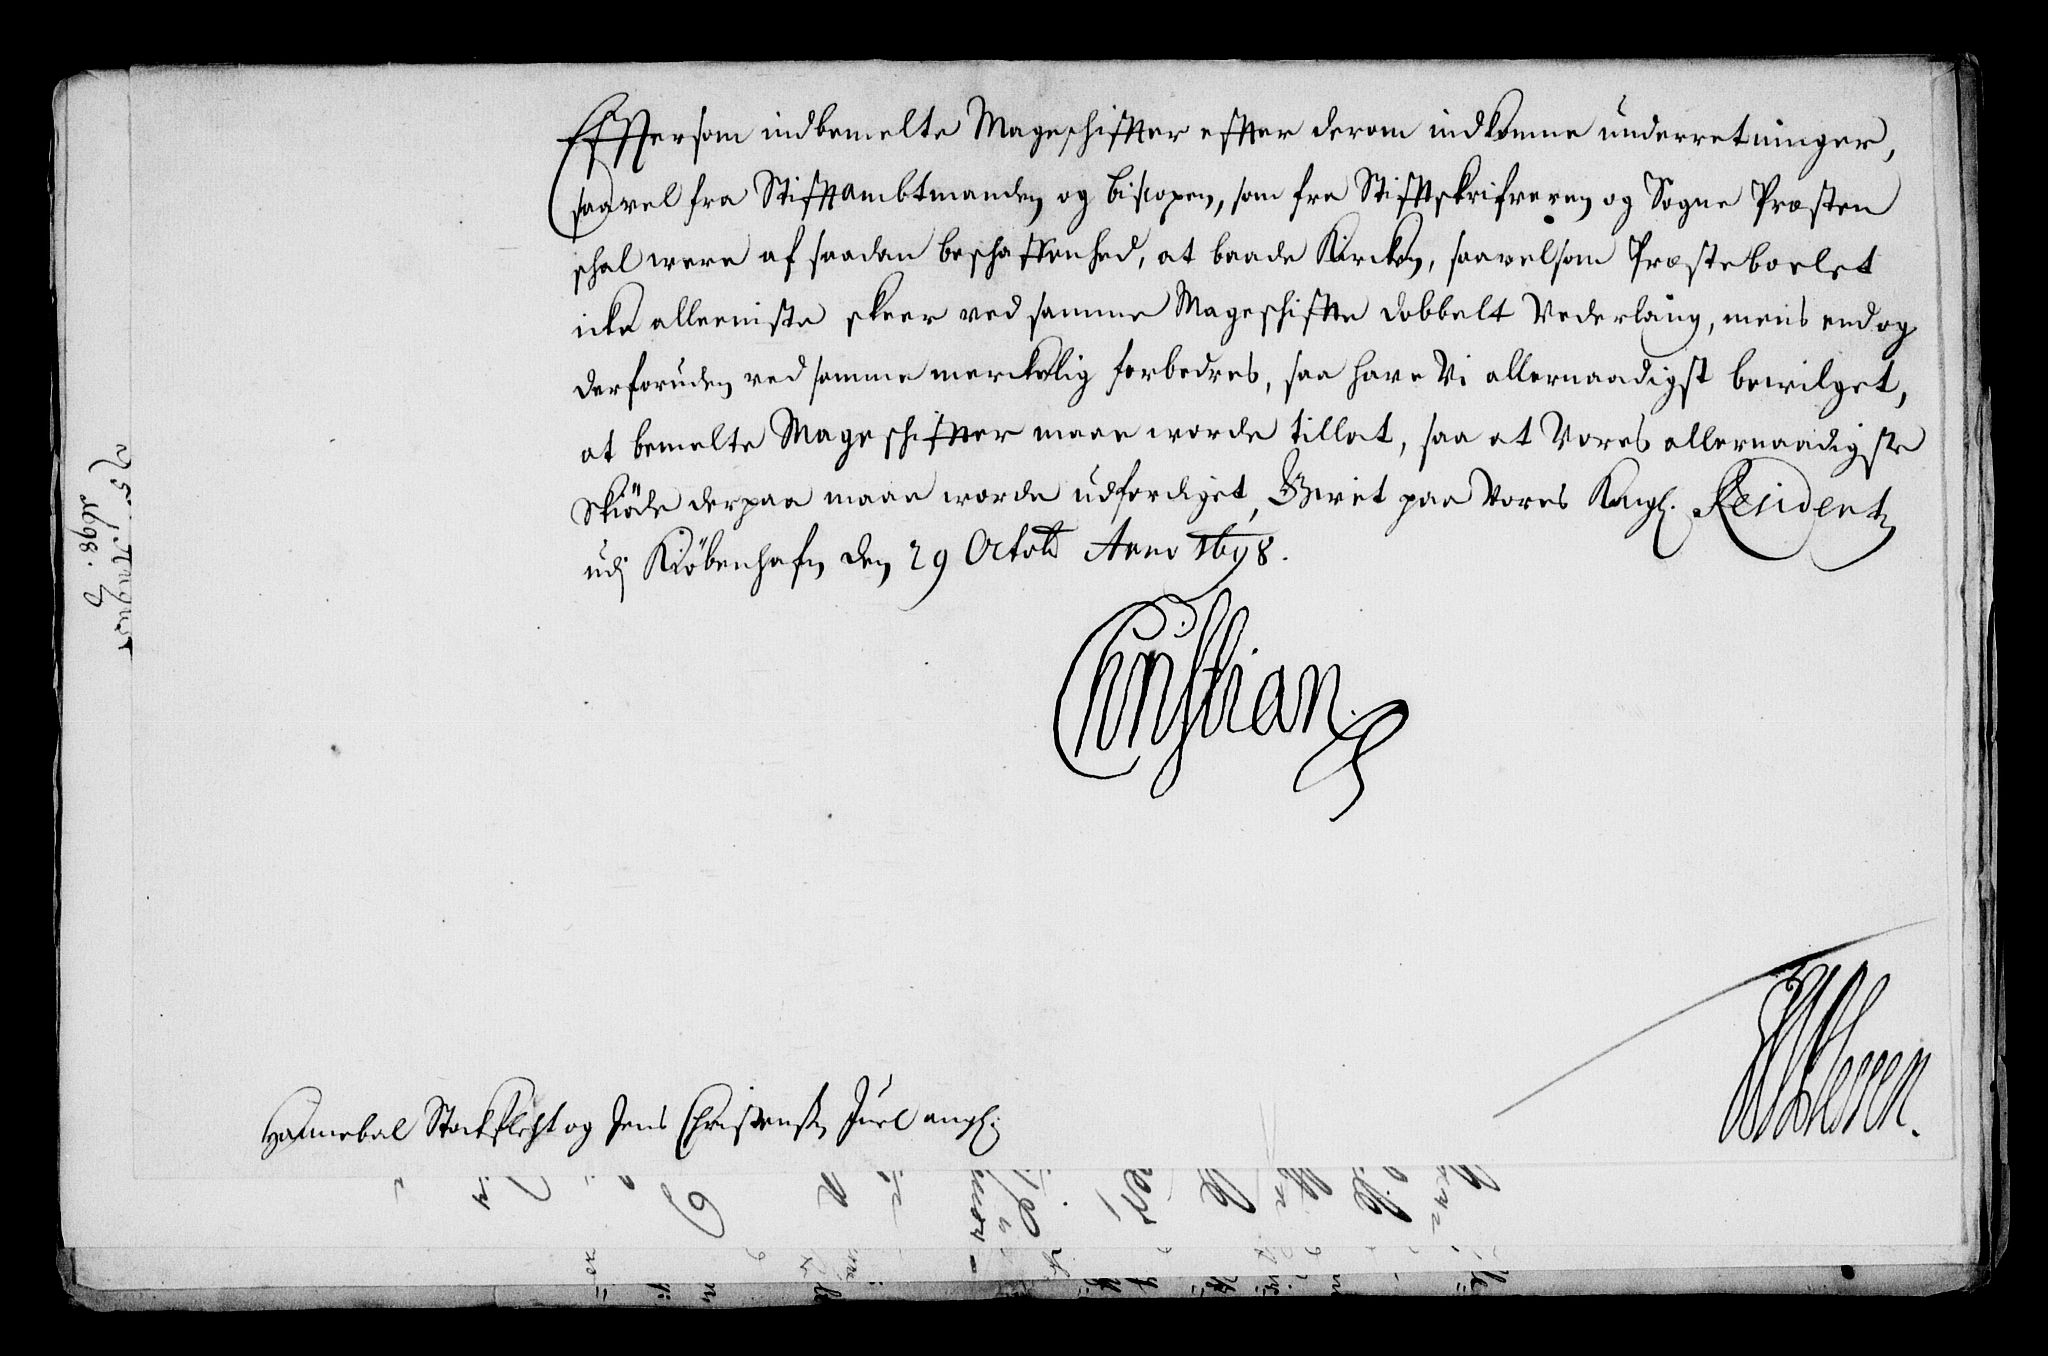 Efftersom indbemelte Mageschiffter effter derom indkomne underretninger,
saavel fra Stifftambtmanden og biscopen, som fra Stifftskrifveren og Sogne Præsten
schal were af saadan beschaffenhed, at baade Kircken, saavelsom Præsteboelet
icke alleeniste skeer ved samme Mageschiffte dobbelt Vederlaug, mens endog
derforuden ved samme merckelig forbedres, saa have Vi allernaadigst bewilget,
at bemelte Mageschiffter maae worde tillat, saa at Vores allernaadigste
Skiöde derpaa maae worde udferdiget, Gifvet paa Vores Kongl. Residentz
udj Kiöbenhafn den 29 Octobr Anno 1698.
Christian
Hannebal Stockfleht og Jens Christensen Juel angl:
1698.